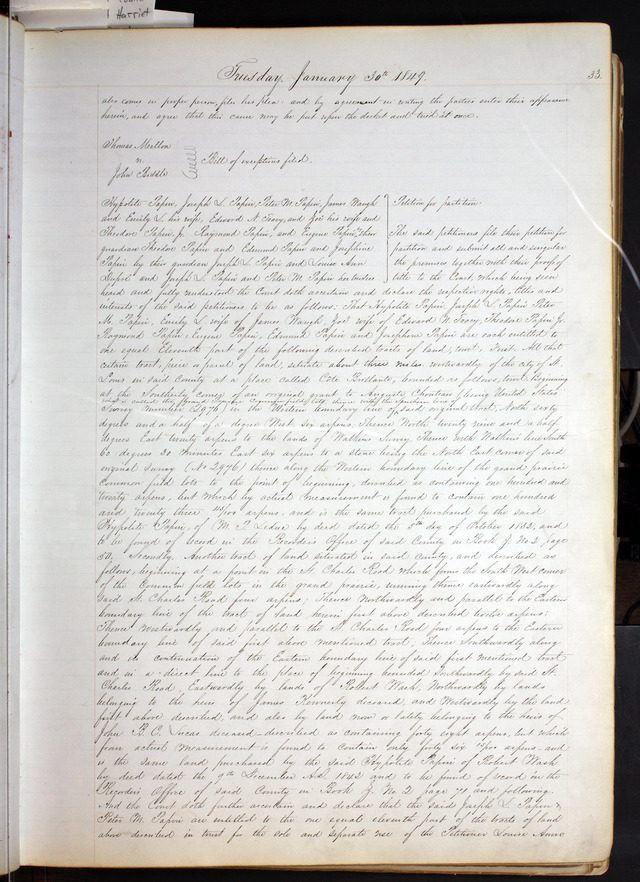 Harriet
Tuesday, January 30th 1849.
33
also comes in proper person, files his plea, and by agreement in writing the parties enter their appearance
herein, and agree that this cause may be put upon the docket and tried at once.
Thomas Mellon
vs.
John Biddle
Bill of exceptions filed.
Hypolite Papin, Joseph L. Papin, Peter M. Papin, James Waugh
and Emily L. his wife, Edward N. Tracy, and Zoé his wife and
Theodore Papin, J. Raymond Papin, and Eugene Papin, their
guardian Theodore Papin and Edmund Papin and Josephine
Papin by their guardian Joseph L. Papin and Louise Ann
and Joseph L. Papin and Peter M. Papin her trustees
Petition for partition.
The said petitioners file their petition for
partition and submit all and singular
the premises together with their proofs of
title to the Court, which being seen
heard and fully understood the Court doth ascertain and declare the respective rights, titles and
interests of the said petitioners to be as follows. That Hypolite Papin, Joseph L. Papin Peter
M. Papin, Emily L. wife of James Waugh, Zoé wife of Edward N. Tracy, Theodore Papin J.
Raymond Papin, Eugene Papin, Edmund Papin and Josephine Papin are each entitled to
one equal Eleventh part of the following described tracts of land, towit. First. All that
certain tract, piece or parcel of land, situate about three miles westwardly of the city of St.
Louis in said County at a place called Côte Brillante, bounded as follows, towit. Beginning
at the Southerly corner of an original grant to Auguste Chouteau (being United States
Survey Number 2976) in the Western boundary line of said original tract, North sixty
degrees and a half of a degree West six arpens, Thence North twenty nine and a half
degrees East twenty arpens to the lands of Watkins Survey, Thence with Watkins line South
60 degrees 30 minutes East six arpens to a stone being the North East corner of said
original Survey (No 2976) thence along the Western boundary line of the grand prairie
Common field lots to the point of beginning, described as containing one hundred and
twenty arpens, but which by actual measurement is found to contain one hundred
and twenty three /100 arpens, and is the same tract purchased by the said
Hypolite Papin, of M. P. Leduc by deed dated the 5th day of October 1832, and
to be found of record in the Recorder's Office of said County in Book J. No. 2, page
50. Secondly. Another tract of land situated in said County, and described as
follows, beginning at a point in the St. Charles Road which forms the South West corner
of the Common field lots, in the grand prairie, running thence eastwardly along
said St. Charles Road four arpens; Thence Northwardly and parallel to the Eastern
boundary line of the tract of land herein first above described twelve arpens;
Thence westwardly and parallel to the St. Charles Road four arpens to the Eastern
boundary line of said first above mentioned tract; Thence Southwardly along
and in continuation of the Eastern boundary line of said first mentioned tract
and in a direct line to the place of beginning bounded Southwardly by said St.
Charles Road, Eastwardly by lands of Robert Wash, Northwardly by lands
belonging to the heirs of James Kennerly deceased, and Westwardly by the land
first above described, and also by land now or lately belonging to the heirs of
John B. C. Lucas deceased—described as containing forty eight arpens, but which
from actual measurement is found to contain only forty six /100 arpens—and
is the same land purchased by the said Hypolite Papin of Robert Wash
by deed dated the 9th December A.D. 1842 and to be found of record in the
Recorder's Office of said County in Book J. No. 2 page 71 and following.
And the Court doth further ascertain and declare that the said Joseph L. Papin &
Peter M. Papin are entitled to the one equal eleventh part of the tracts of land
above described in trust for the sole and separate use of the Petitioner Louise Anne